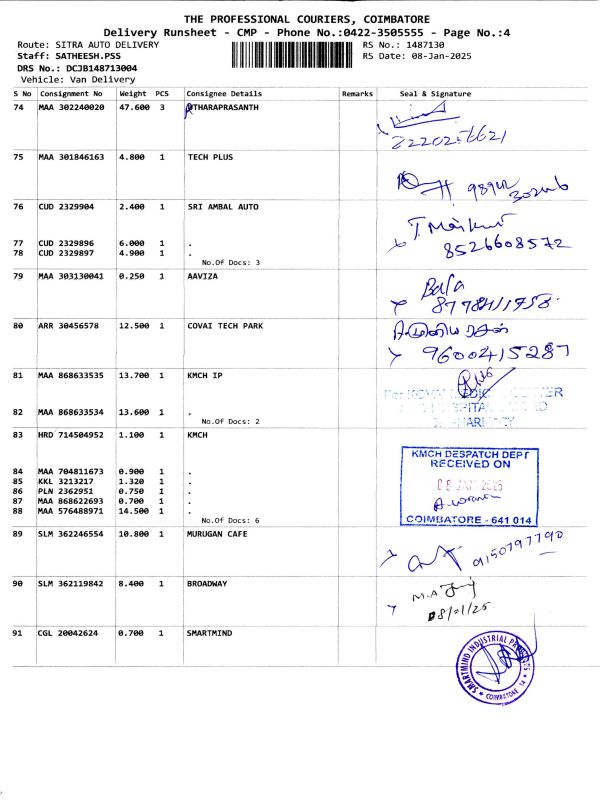 THE PROFESSIONAL COURIERS, COIMBATORE
Delivery Runsheet - CMP - Phone No.:0422-3505555 - Page No.:4
Route: SITRA AUTO DELIVERY
RS No.: 1487130
Staff: SATHEESH.PSS
RS Date: 08-Jan-2025
DRS No.: DCJB148713004
Vehicle: Van Delivery
S No Consignment No Weight PCS Consignee Details Remarks Seal & Signature
74 MAA 302240020 47.600 3 UTHARAPRASANTH
8220256621
75 MAA 301846163 4.800 1 TECH PLUS
76 CUD 2329904 2.400 1 SRI AMBAL AUTO
77 CUD 2329896 6.000 1 .
8526608572
78 CUD 2329897 4.900 1 .
No.Of Docs: 3
79 MAA 303130041 0.250 1 AAVIZA
Bala
80 ARR 30456578 12.500 1 COVAI TECH PARK
9600415287
81 MAA 868633535 13.700 1 KMCH IP
82 MAA 868633534 13.600 1 .
No.Of Docs: 2
83 HRD 714504952 1.100 1 KMCH
KMCH DESPATCH DEPT
RECEIVED ON
84 MAA 704811673 0.900 1 .
85 KKL 3213217 1.320 1 .
86 PLN 2362951 0.750 1 .
87 MAA 868622693 0.700 1 .
88 MAA 576488971 14.500 1 .
No.Of Docs: 6
COIMBATORE - 641 014
89 SLM 362246554 10.800 1 MURUGAN CAFE
9150797790
90 SLM 362119842 8.400 1 BROADWAY
08/01/25
91 CGL 20042624 0.700 1 SMARTMIND
SMARTMIND INDUSTRIAL
COIMBATORE